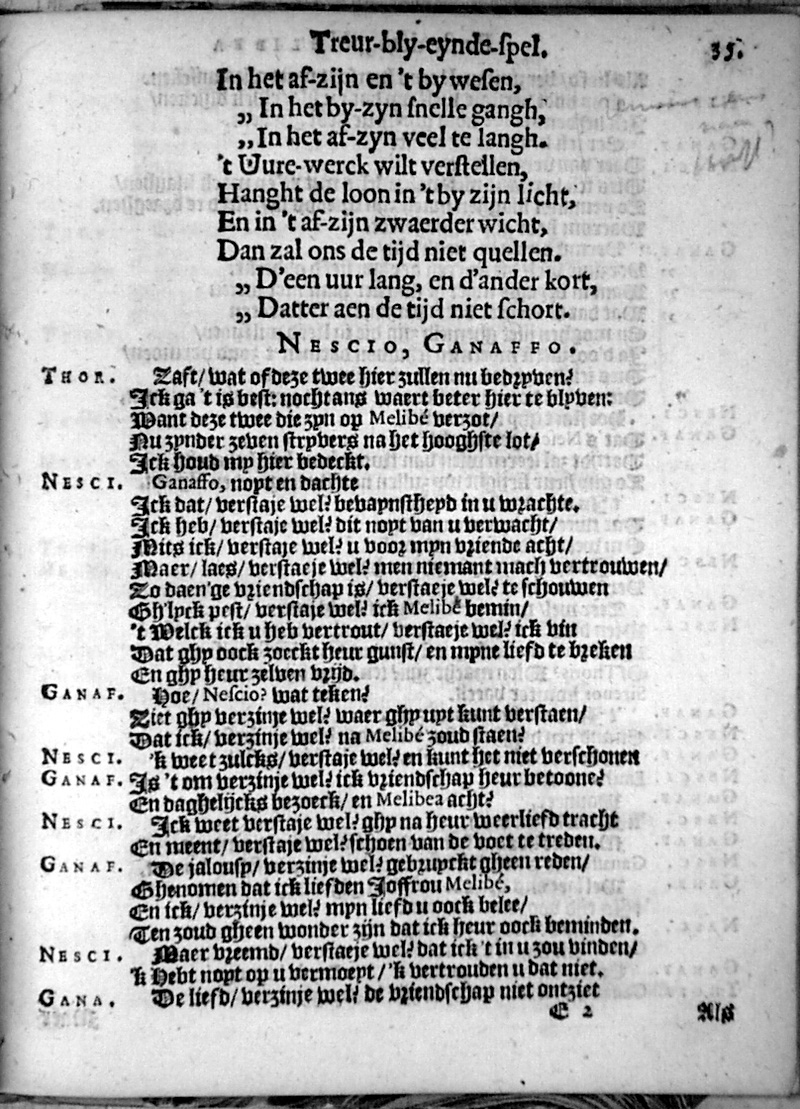 Treur-bly-eynde-spel. 35.
In het af-zijn en 't by wesen,
„ In het by-zyn snelle gangh,
„In het af-zyn veel te langh.
't Uure-werck wilt verstellen,
Hanght de loon in 't by zijn licht,
En in 't af-zijn zwaerder wicht,
Dan zal ons de tijd niet quellen.
„ D'een uur lang, en d'ander kort,
„ Datter aen de tijd niet schort.
NESCIO, GANAFFO.
THOR. Zaft/ wat of deze twee hier zullen nu bedryven?
Ick ga 't is best: nochtans waert beter hier te blyven:
Want deze twee die zyn op Melibé verzot/
Nu zynder zeven stryvers na het hooghste lot/
Ick houd my hier bedeckt.
NESCI. Ganaffo, noyt en dachte
Ick dat/ verstaje wel? bevaynstheyd in u wrachte.
Ick heb/ verstaje wel? dit noyt van u verwacht/
Mits ick/ verstaje wel? u voor myn vriende acht/
Maer/ laes/ verstaeje wel? men niemant mach vertrouwen/
Zo daen'ge vriendschap is/ verstaeje wel? te schouwen
Gh'lyck pest/ verstaje wel? ick Melibé bemin/
't Welck ick u heb vertrout/ verstaeje wel? ick vin
Dat ghy oock zoeckt heur gunst/ en myne liefd te breken
En ghy heur zelven vrijd.
GANAF. Hoe/ Nescio? wat teken?
Ziet ghy verzinje wel? waer ghy uyt kunt verstaen/
Dat ick/ verzinje wel? na Melibé zoud staen?
NESCI. 'k weet zulcks/ verstaje wel? en kunt het niet verschonen
GANAF. Is 't om verzinje wel? ick vriendschap heur betoone?
En daghelijcks bezoeck/ en Melibea acht?
NESCI. Ick weet verstaje wel? ghy na heur weerliefd tracht
En meent/ verstaje wel? schoen van de voet te treden.
GANAF. De jalousy/ verzinje wel? gebruyckt gheen reden/
Ghenomen dat ick liefden Joffrou Melibé,
En ick/ verzinje wel? myn liefd u oock belee/
Ten zoud gheen wonder zijn dat ick heur oock beminden.
NESCI. Maer vreemd/ verstaeje wel? dat ick 't in u zou vinden/
'k Hebt noyt op u vermoeyt / 'k vertrouden u dat niet.
GANA. De liefd/ verzinje wel? de vriendschap niet ontziet
E 2 Als